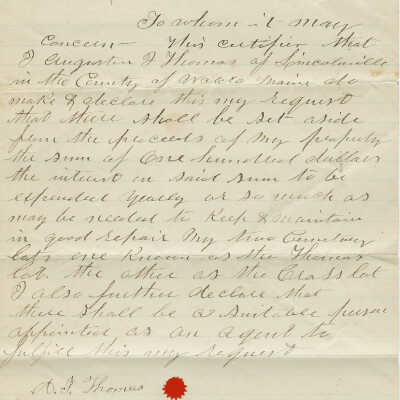 To whom it may
Concern - This certifies that
I Augustin J Thomas of Lincolnville
in the County of Waldo Maine do
make & declare this my request
that there shall be set aside
from the proceeds of my property
the sum of One hundred dollars
the interest on said sum to be
expended yearly or so much as
may be needed to keep & maintain
in good repair my two Cemetery
lots one known as the Thomas
lot the other as the Cross lot
I also further declare that
there shall be a suitable person
appointed as an agent to
fulfill this my request
A. J. Thomas